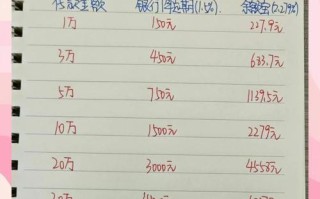 贷款金额 银行1年逾期(1.5%) (2.279%)
1万 150元 227.9元
3万 450元 683.7元
5万 750元 1139.5元
10万 1500元 2279元
20万 3000元 4558元